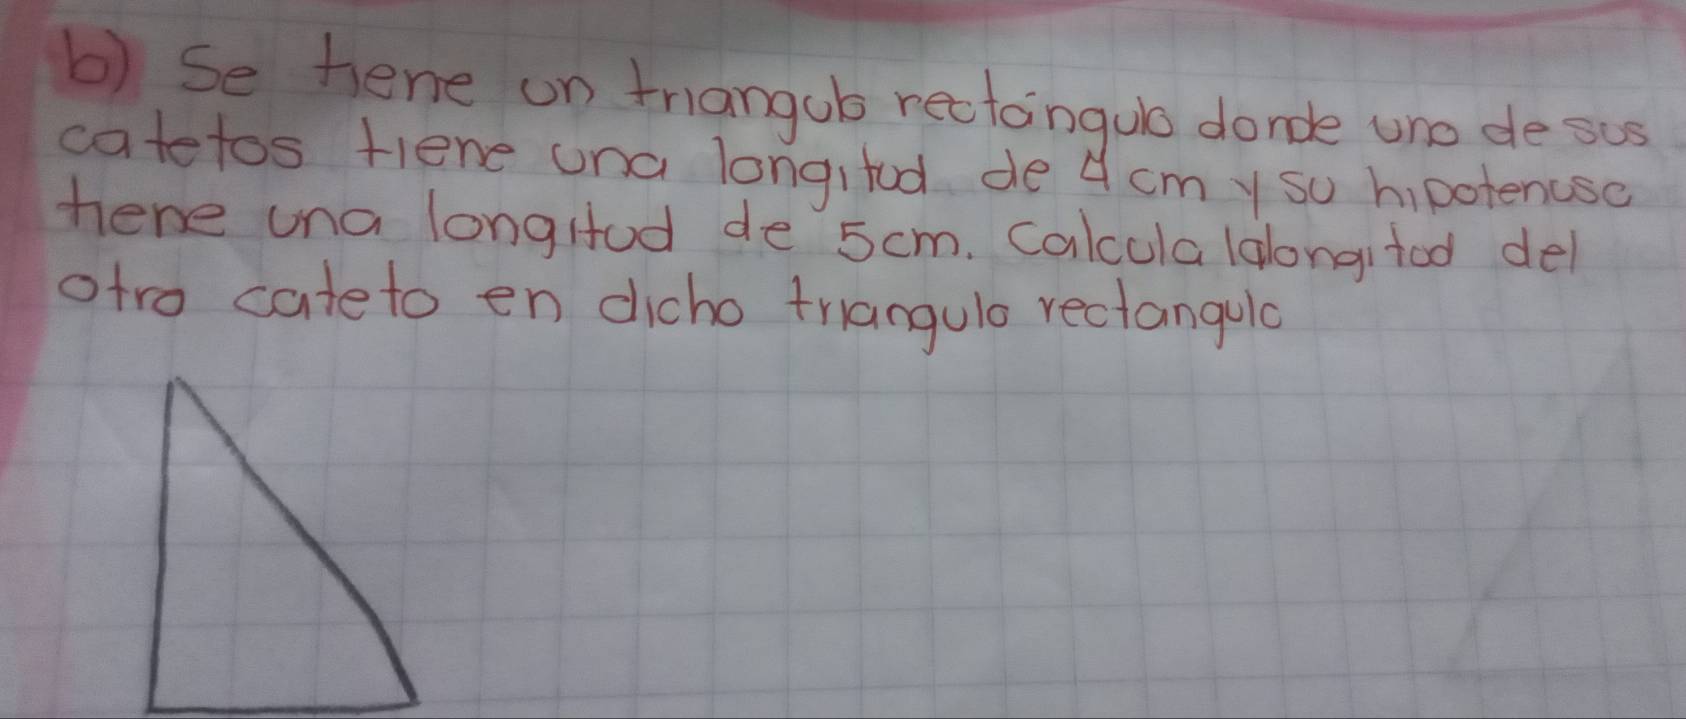 b) Se tiene un triangulo rectángulo donde uno de sus
catetos tiene una longitud de 4 cm y su hipotenusa
tiene una longitud de 5cm. Calcula la longitud del
otro cateto en dicho triangulo rectangulo